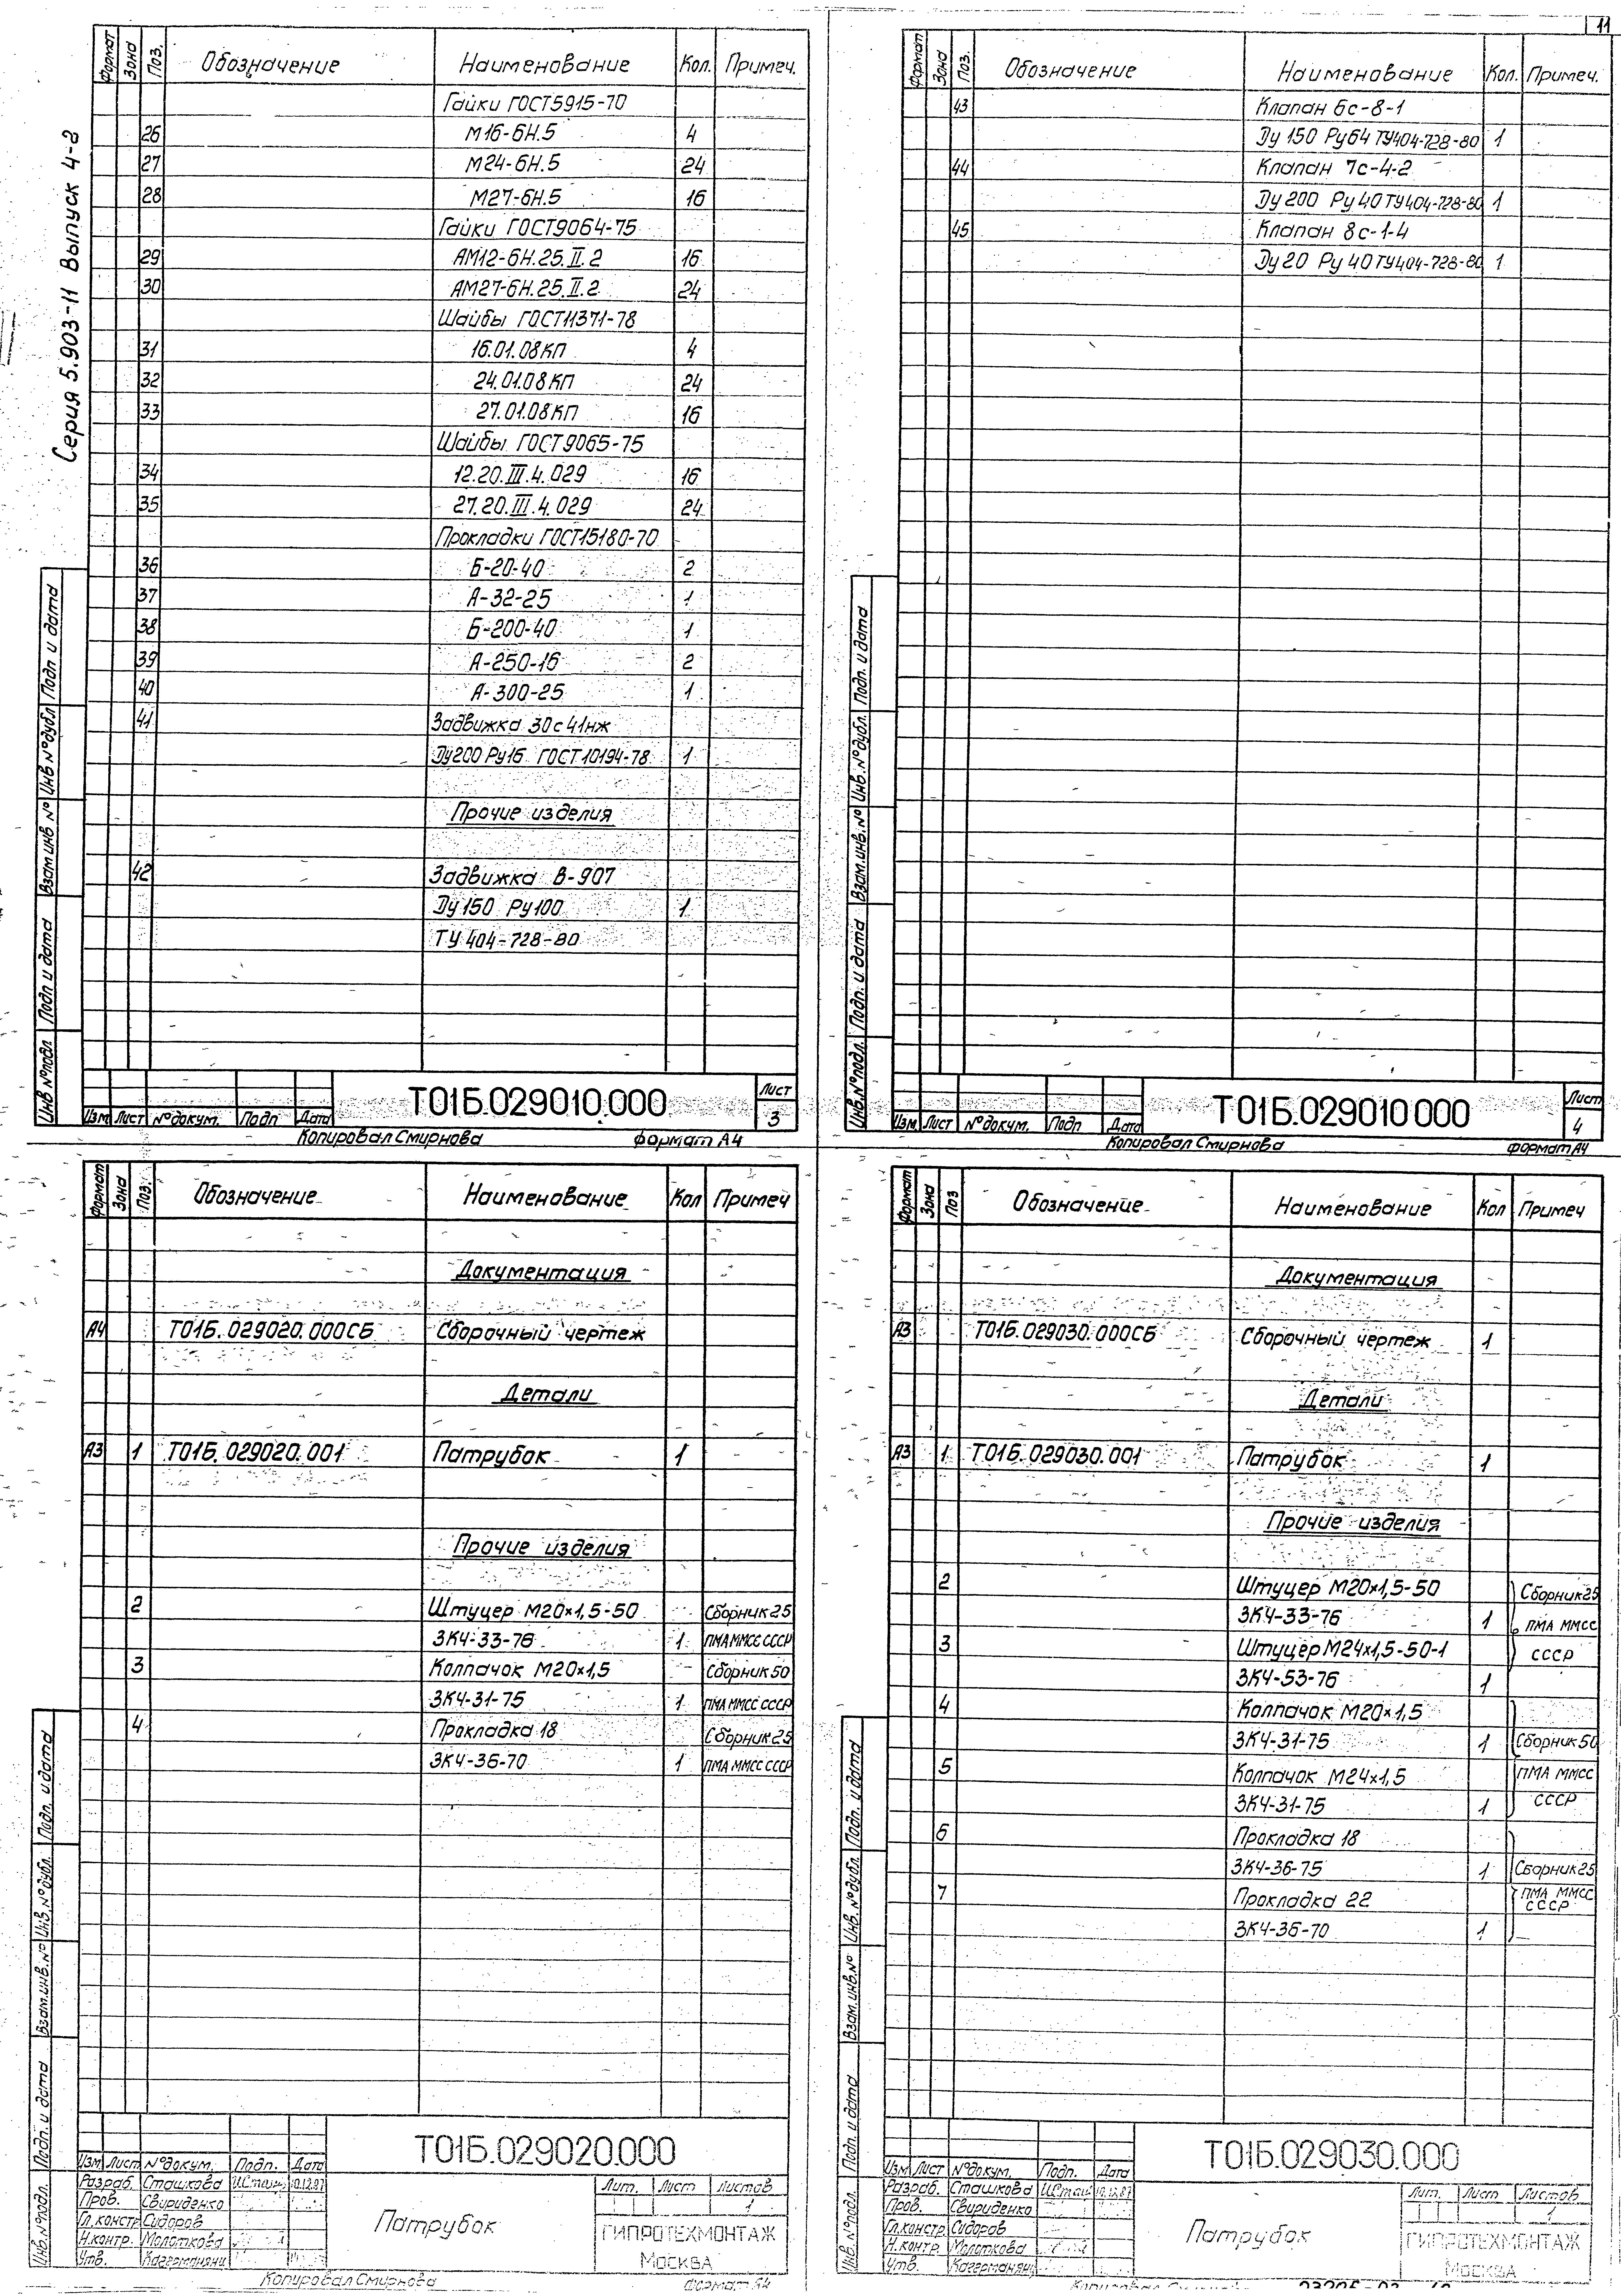 11
Серия 5.903-11 Выпуск 4-2
Формат Зона Поз. Обозначение Наименование Кол. Примеч.
Гайки ГОСТ5915-70
26 М16-6Н.5 4
27 М24-6Н.5 24
28 М27-6Н.5 16
Гайки ГОСТ9064-75
29 АМ12-6Н.25.II.2 16
30 АМ27-6Н.25.II.2 24
Шайбы ГОСТ11371-78
31 16.01.08КП 4
32 24.01.08КП 24
33 27.01.08КП 16
Шайбы ГОСТ9065-75
34 12.20.III.4.029 16
35 27.20.III.4.029 24
Прокладки ГОСТ15180-70
36 Б-20-40 2
37 А-32-25 1
38 Б-200-40 1
39 А-250-16 2
40 А-300-25 1
41 Задвижка 30с41нж
Ду200 Ру16 ГОСТ10194-78 1
Прочие изделия
42 Задвижка В-907
Ду150 Ру100 1
ТУ 404-728-80
Инв №подл Подп и дата Взам инв № Инв №дубл Подп и дата
Изм Лист №докум. Подп Дата
Т01Б.029010.000
Лист
3
Копировал Смирнова Формат А4
Формат Зона Поз. Обозначение Наименование Кол. Примеч.
43 Клапан 6с-8-1
Ду 150 Ру64 ТУ404-728-80 1
44 Клапан 7с-4-2
Ду 200 Ру 40 ТУ404-728-80 1
45 Клапан 8с-1-4
Ду 20 Ру 40 ТУ404-728-80 1
Инв.№подл. Подп. и дата Взам.инв.№ Инв.№дубл. Подп. и дата
Изм Лист №докум. Подп Дата
Т01Б.029010 000
Лист
4
Копировал Смирнова Формат А4
Формат Зона Поз. Обозначение Наименование Кол Примеч
Документация
А4 Т01Б.029020.000СБ Сборочный чертеж
Детали
А3 1 Т01Б.029020.001 Патрубок 1
Прочие изделия
2 Штуцер М20х1,5-50 Сборник25
ЗК4-33-76 1 ПМА ММСС СССР
3 Колпачок М20х1,5 Сборник50
ЗК4-31-75 1 ПМА ММСС СССР
4 Прокладка 18 Сборник25
ЗК4-36-70 1 ПМА ММСС СССР
Инв.№подл. Подп. и дата Взам.инв.№ Инв.№дубл. Подп. и дата
Изм Лист №докум. Подп. Дата
Т01Б.029020.000
Разраб. Сташкова 10.12.87
Пров. Свириденко
Гл.констр Сидоров
Н.контр. Молоткова
Утв.
Патрубок
Лит. Лист Листов
1
ГИПРОТЕХМОНТАЖ
Москва
Копировал Смирнова Формат А4
Формат Зона Поз Обозначение Наименование Кол Примеч
Документация
А3 Т01Б.029030.000СБ Сборочный чертеж 1
Детали
А3 1 Т01Б.029030.001 Патрубок 1
Прочие изделия
2 Штуцер М20х1,5-50 Сборник25
ЗК4-33-76 1 ПМА ММСС
3 Штуцер М24х1,5-50-1 СССР
ЗК4-53-76 1
4 Колпачок М20х1,5
ЗК4-31-75 1 Сборник50
5 Колпачок М24х1,5 ПМА ММСС
ЗК4-31-75 1 СССР
6 Прокладка 18
ЗК4-36-75 1 Сборник25
7 Прокладка 22 ПМА ММСС СССР
ЗК4-36-70 1
Инв.№подл. Подп. и дата Взам.инв.№ Инв.№дубл. Подп. и дата
Изм Лист №докум. Подп. Дата
Т01Б.029030.000
Разраб. Сташкова
Пров. Свириденко
Гл.констр Сидоров
Н.контр. Молоткова
Утв.
Патрубок
Лит. Лист Листов
1
ГИПРОТЕХМОНТАЖ
Москва